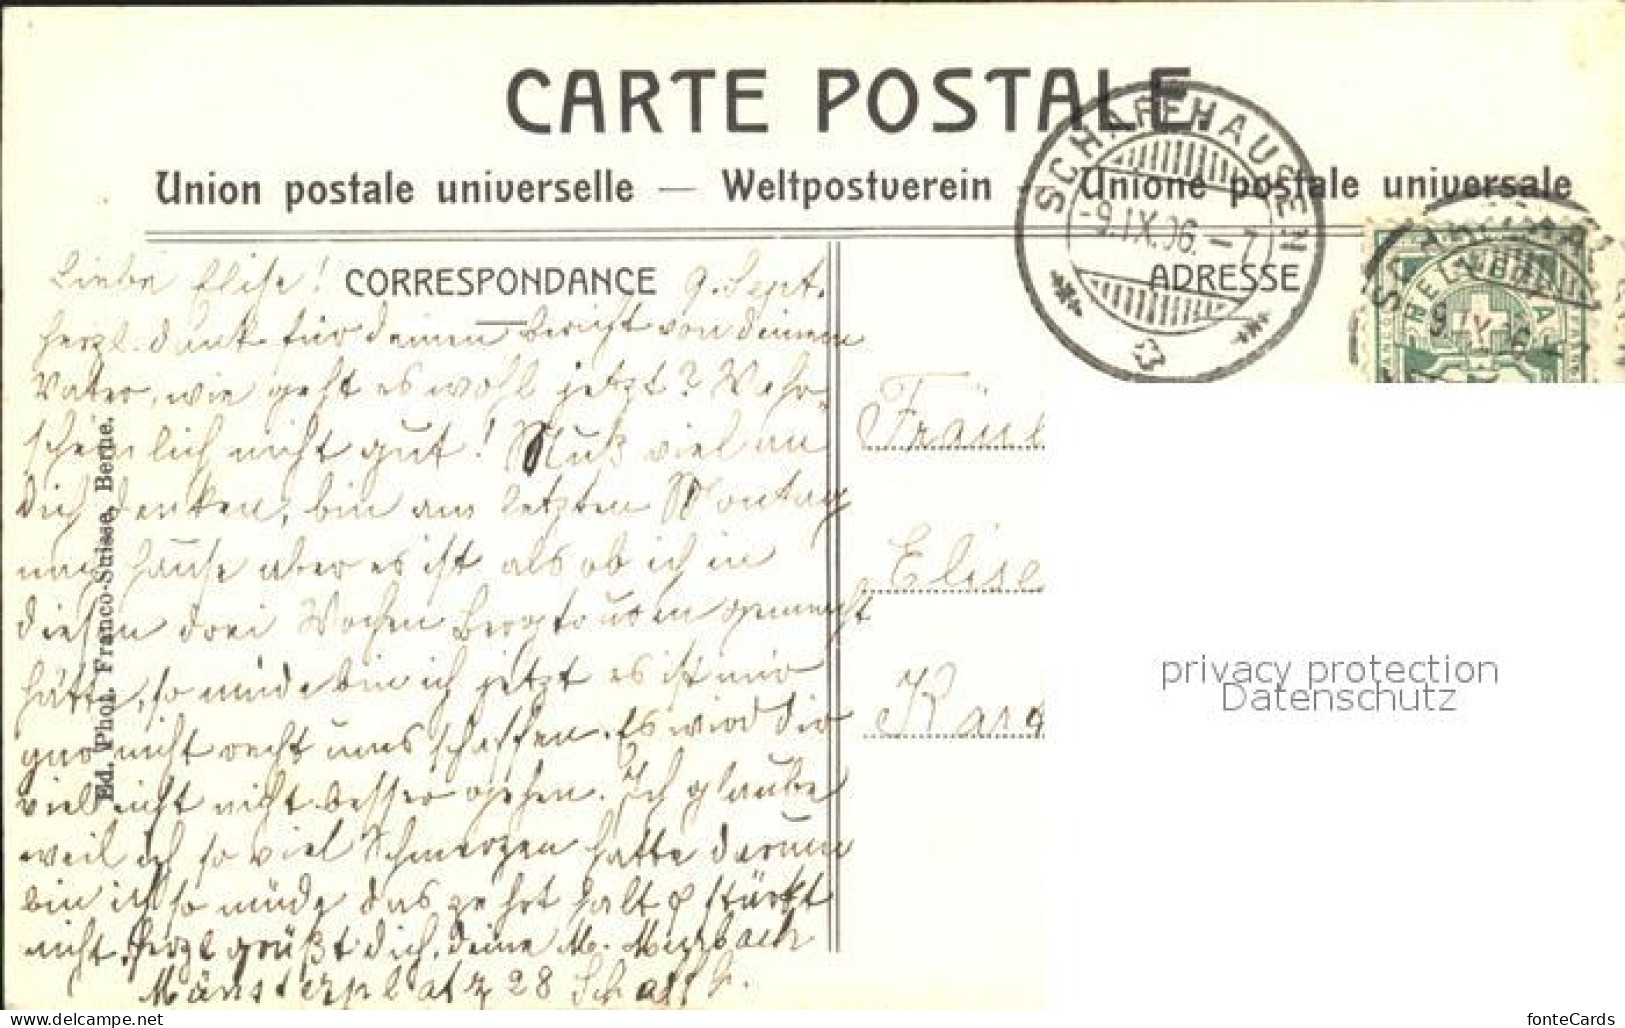 CARTE POSTALE.
Union postale universelle — Weltpostverein - Unione postale universale
CORRESPONDANCE
ADRESSE
SCHAFFHAUSEN
-9.IX.06.-7
HELVETIA
Ed. Phot. Franco-Suisse, Berne.
Liebe Elise! 9. Sept.
herzl. Dank für deinen Bericht von deinem
Vater, wie geht es wohl jetzt? Wahr-
scheinlich nicht gut! Muß viel an
Dich denken, bin am letzten Montag
nach Hause aber es ist als ob ich in
diesen drei Wochen Bergtouren gemacht
hätte, so müde bin ich jetzt es ist mir
gar nicht recht ums schaffen. Es wird dir
vielleicht nicht besser gehen. Ich glaube
weil ich so viel Schmerzen hatte darum
bin ich so müde das zehrt halt & stärkt
nicht. Herzl grüßt dich, deine M.
Münsterplatz 28 Schaffh.
Fräul
Elise
privacy protection
Datenschutz
https://www.delcampe.net
fonteCards